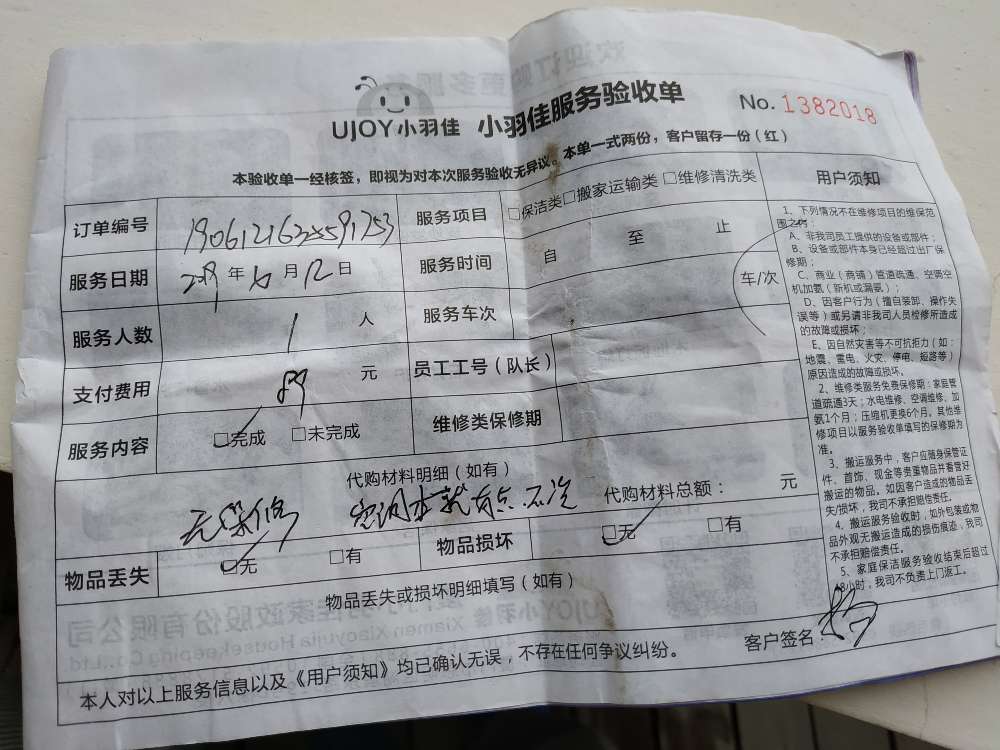 UJOY小羽佳 小羽佳服务验收单 No. 1382018
本验收单一经核签，即视为对本次服务验收无异议。本单一式两份，客户留存一份（红）
订单编号 服务项目 □保洁类□搬家运输类 □维修清洗类
服务日期 年 月 12 日 服务时间 自 至 止
服务人数 1 人 服务车次 车/次
支付费用 元 员工工号（队长）
服务内容 □完成 □未完成 维修类保修期
代购材料明细（如有）
无保修 空调本就有点不冷 代购材料总额： 元
物品丢失 □无 □有 物品损坏 □无 □有
物品丢失或损坏明细填写（如有）
客户签名：
本人对以上服务信息以及《用户须知》均已确认无误，不存在任何争议纠纷。
用户须知
1、下列情况不在维修项目的维保范
围之内：
A、非我司员工提供的设备或部件；
B、设备或部件本身已经超过出厂保
修期；
C、商业（商铺）管道疏通、空调空
机加氨（新机或漏氨）；
D、因客户行为（擅自装卸、操作失
误等）或另请非我司人员检修所造成
的故障或损坏；
E、因自然灾害等不可抗拒力（如：
地震、雷电、火灾、停电、短路等）
原因造成的故障或损坏。
2、维修类服务免费保修期：家庭管
道疏通3天；水电维修、空调维修、加
氨1个月；压缩机更换6个月。其他维
修项目以服务验收单填写的保修期为
准。
3、搬运服务中，客户应随身保管证
件、首饰、现金等贵重物品并看管好
搬运的物品。如因客户造成的物品丢
失/损坏，我司不承担赔偿责任。
4、搬运服务验收时，如外包装或物
品外观无搬运造成的损伤痕迹，我司
不承担赔偿责任。
5、家庭保洁服务验收结束后超过
48小时，我司不负责上门派工。